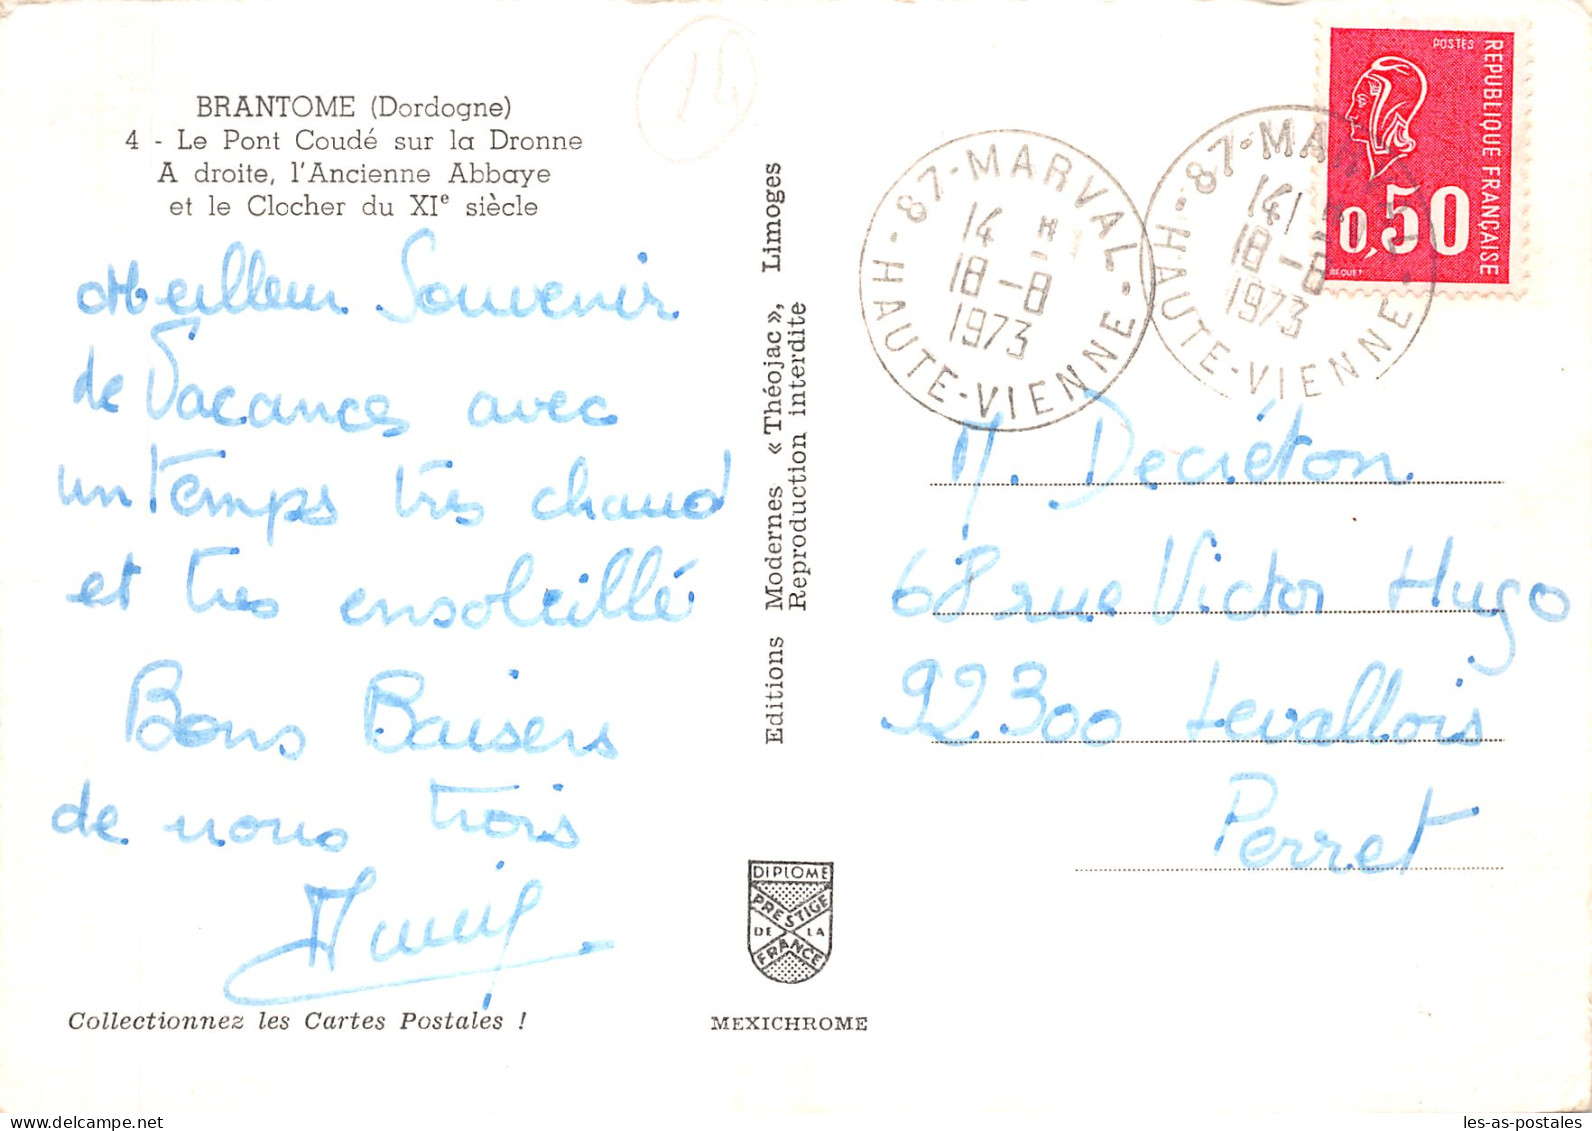 BRANTOME (Dordogne)
4 - Le Pont Coudé sur la Dronne
A droite, l'Ancienne Abbaye
et le Clocher du XIe siècle
Meilleur Souvenir
de Vacances avec
un Temps très chaud
et très ensoleillé
Bons Baisers
de nous trois
Collectionnez les Cartes Postales !
Editions Modernes « Théojac », Limoges
Reproduction interdite
DIPLOME
PRESTIGE
DE LA
FRANCE
MEXICHROME
87-MARVAL-
14 H
18-8
1973
HAUTE-VIENNE-
87-MARVAL
14 H
18-8
1973
HAUTE-VIENNE-
POSTES
REPUBLIQUE FRANÇAISE
0,50
BEQUET
M. Deciéton
68 rue Victor Hugo
92.300 Levallois
Perret
les-as-postales@hotmail.com
les-as-postales